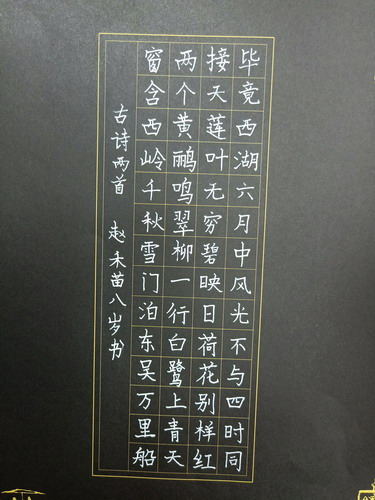 毕竟西湖六月中风光不与四时同
接天莲叶无穷碧映日荷花别样红
两个黄鹂鸣翠柳一行白鹭上青天
窗含西岭千秋雪门泊东吴万里船
古诗两首 赵禾苗八岁书